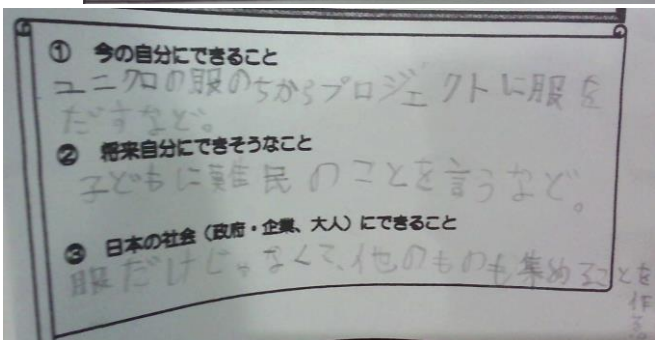 ① 今の自分にできること
ユニクロの服のちからプロジェクトに服を
だすなど。
② 将来自分にできそうなこと
子どもに難民のことを言うなど。
③ 日本の社会（政府・企業、大人）にできること
服だけじゃなくて、他のものも集めることを
作る。